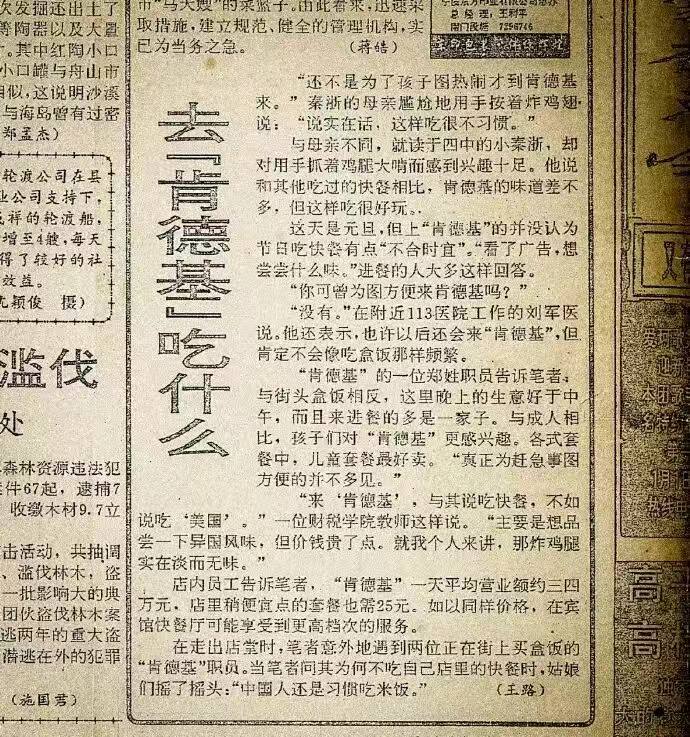 次发掘还出土了
等陶器以及大量
。其中红陶小口
小口罐与舟山市
相似，这说明沙溪
与海岛曾有过密
郑孟杰）
轮渡公司在县
业公司支持下，
增至4艘，每天
得了较好的社
效益。
尤颖俊 摄）
滥伐
处
森林资源违法犯
案件67起，逮捕7
收缴木材9.7立
击活动，共抽调
、滥伐林木，盗
一批影响大的典
团伙盗伐林木案
逃两年的重大盗
潜逃在外的犯罪
（施国君）
市“马大嫂”的菜篮子。由此看来，迅速采
取措施，建立规范、健全的管理机构，实
已为当务之急。 （蒋皓）
总经理：王利平
去「肯德基」吃什么
“还不是为了孩子图热闹才到肯德基
来。”秦浙的母亲尴尬地用手按着炸鸡翅
说：“说实在话，这样吃很不习惯。”
与母亲不同，就读于四中的小秦浙，却
对用手抓着鸡腿大啃而感到兴趣十足。他说
和其他吃过的快餐相比，肯德基的味道差不
多，但这样吃很好玩。
这天是元旦，但上“肯德基”的并没认为
节日吃快餐有点“不合时宜”。“看了广告，想
尝尝什么味。”进餐的人大多这样回答。
“你可曾为图方便来肯德基吗？”
“没有。”在附近113医院工作的刘军医
说。他还表示，也许以后还会来“肯德基”，但
肯定不会像吃盒饭那样频繁。
“肯德基”的一位郑姓职员告诉笔者，
与街头盒饭相反，这里晚上的生意好于中
午，而且来进餐的多是一家子。与成人相
比，孩子们对“肯德基”更感兴趣。各式套
餐中，儿童套餐最好卖。“真正为赶急事图
方便的并不多见。”
“来‘肯德基’，与其说吃快餐，不如
说吃‘美国’。”一位财税学院教师这样说。“主要是想品
尝一下异国风味，但价钱贵了点。就我个人来讲，那炸鸡腿
实在淡而无味。”
店内员工告诉笔者，“肯德基”一天平均营业额约三四
万元，店里稍便宜点的套餐也需25元。如以同样价格，在宾
馆快餐厅可能享受到更高档次的服务。
在走出店堂时，笔者意外地遇到两位正在街上买盒饭的
“肯德基”职员。当笔者问其为何不吃自己店里的快餐时，姑娘
们摇了摇头：“中国人还是习惯吃米饭。” （王路）
高
高